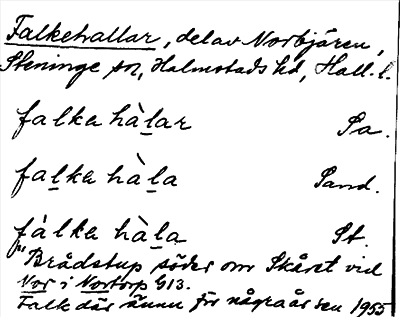 Falkehallar, del av Norbjären,
Steninge sn, Halmstads hd, Hall. l.
falka hàlar Sa.
falka hàla Sand.
fàlka hàla St.
"Brådstup söder om Skåret vid
Nor i Nortorp G13.
Falk där ännu för några år sen 1955